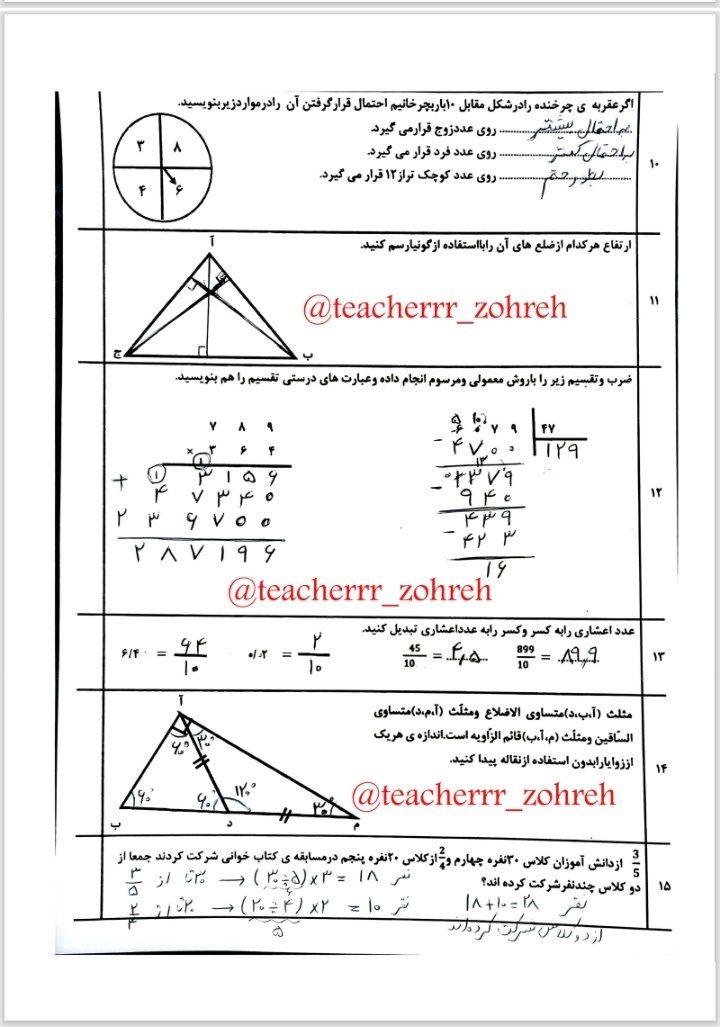 اگر عقربه ی چرخنده را در شکل مقابل ۱۰ بار بچرخانیم احتمال قرار گرفتن آن را در موارد زیر بنویسید.
به احتمال بیشتر روی عدد زوج قرار می گیرد.
به احتمال کمتر روی عدد فرد قرار می گیرد.
بطور حتم روی عدد کوچک تر از ۱۲ قرار می گیرد.
۱۰
۳ ۸
۴ ۶
ارتفاع هر کدام از ضلع های آن را با استفاده از گونیا رسم کنید.
۱۱
آ
ج ب
@teacherrr_zohreh
ضرب و تقسیم زیر را با روش معمولی و مرسوم انجام داده و عبارت های درستی تقسیم را هم بنویسید.
۱۲
۷ ۸ ۹
× ۳ ۶ ۴
+ ۳ ۱ ۵ ۶
۴ ۷ ۳ ۴ ۰
۲ ۳ ۶ ۷ ۰ ۰
۲ ۸ ۷ ۱ ۹ ۶
۵ ۱۰
۶ ۰ ۷ ۹ ۴۷
- ۴ ۷ ۰ ۰ ۱۲۹
۱۳
۱ ۳ ۷ ۹
- ۹ ۴ ۰
۴ ۳ ۹
- ۴ ۲ ۳
۱۶
@teacherrr_zohreh
عدد اعشاری را به کسر و کسر را به عدد اعشاری تبدیل کنید.
۱۳
۶/۴ = ۶۴/۱۰ ۰/۲ = ۲/۱۰ 45/10 = ۴,۵ 899/10 = ۸۹,۹
مثلث (آ،ب،د) متساوی الاضلاع و مثلّث (آ،م،د) متساوی
السّاقین و مثلّث (م،آ،ب) قائم الزّاویه است. اندازه ی هر یک
از زوایا را بدون استفاده از نقاله پیدا کنید.
۱۴
آ
۶۰° ۳۰°
۶۰° ۶۰° ۱۲۰° ۳۰°
ب د م
@teacherrr_zohreh
3/5 از دانش آموزان کلاس ۳۰ نفره چهارم و 2/4 از کلاس ۲۰ نفره پنجم در مسابقه ی کتاب خوانی شرکت کردند جمعا از
دو کلاس چند نفر شرکت کرده اند؟
۱۵
۳/۵ از ۳۰ تا → (۳۰÷۵)×۳ = ۱۸ نفر
۶
۲/۴ از ۲۰ تا → (۲۰÷۴)×۲ = ۱۰ نفر
۵
۱۸+۱۰=۲۸ نفر
از دو کلاس شرکت کرده‌اند